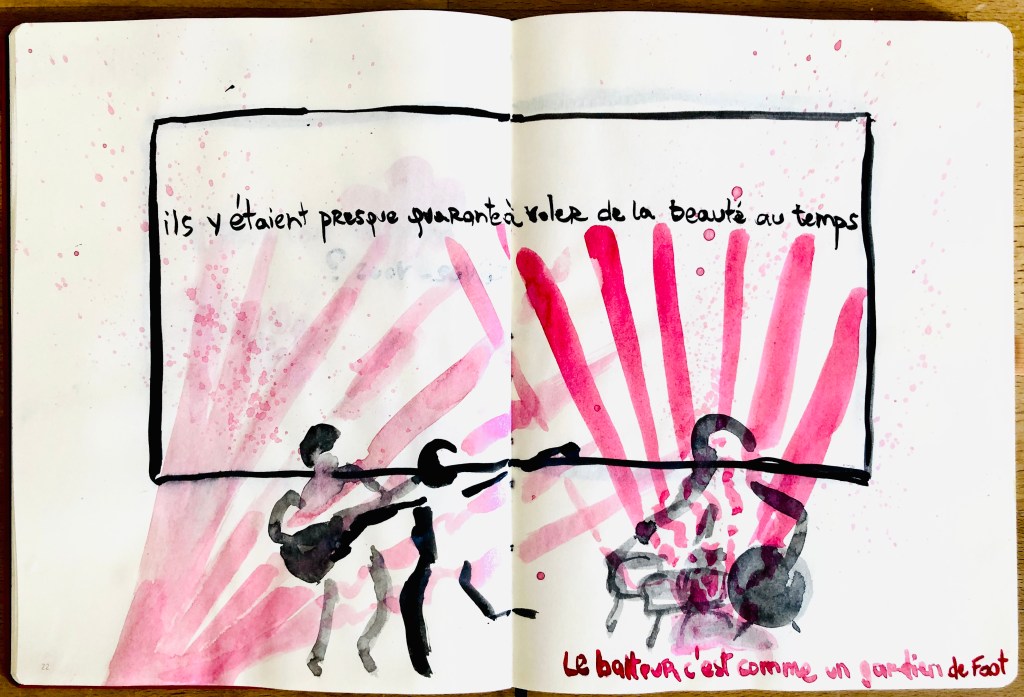 ils y étaient presque quarante à voler de la beauté au temps
Le batteur c'est comme un gardien de Foot